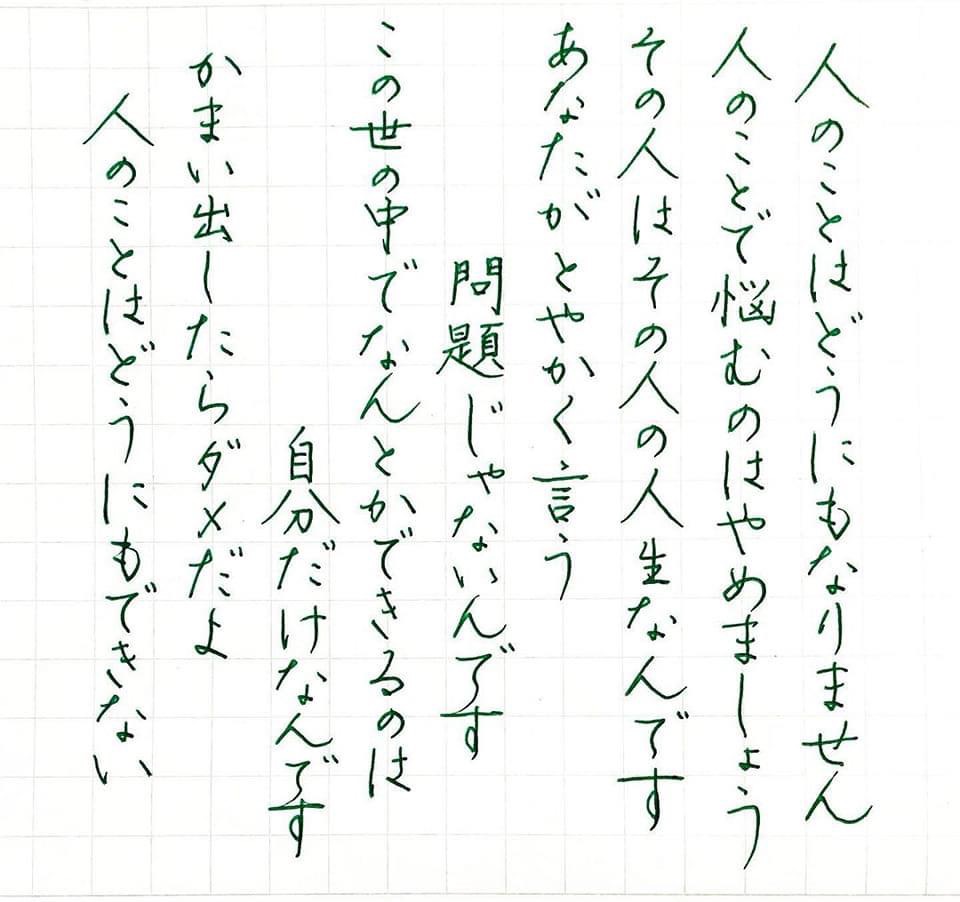 人のことはどうにもなりません
人のことで悩むのはやめましょう
その人はその人の人生なんです
あなたがとやかく言う
問題じゃないんです
この世の中でなんとかできるのは
自分だけなんです
かまい出したらダメだよ
人のことはどうにもできない